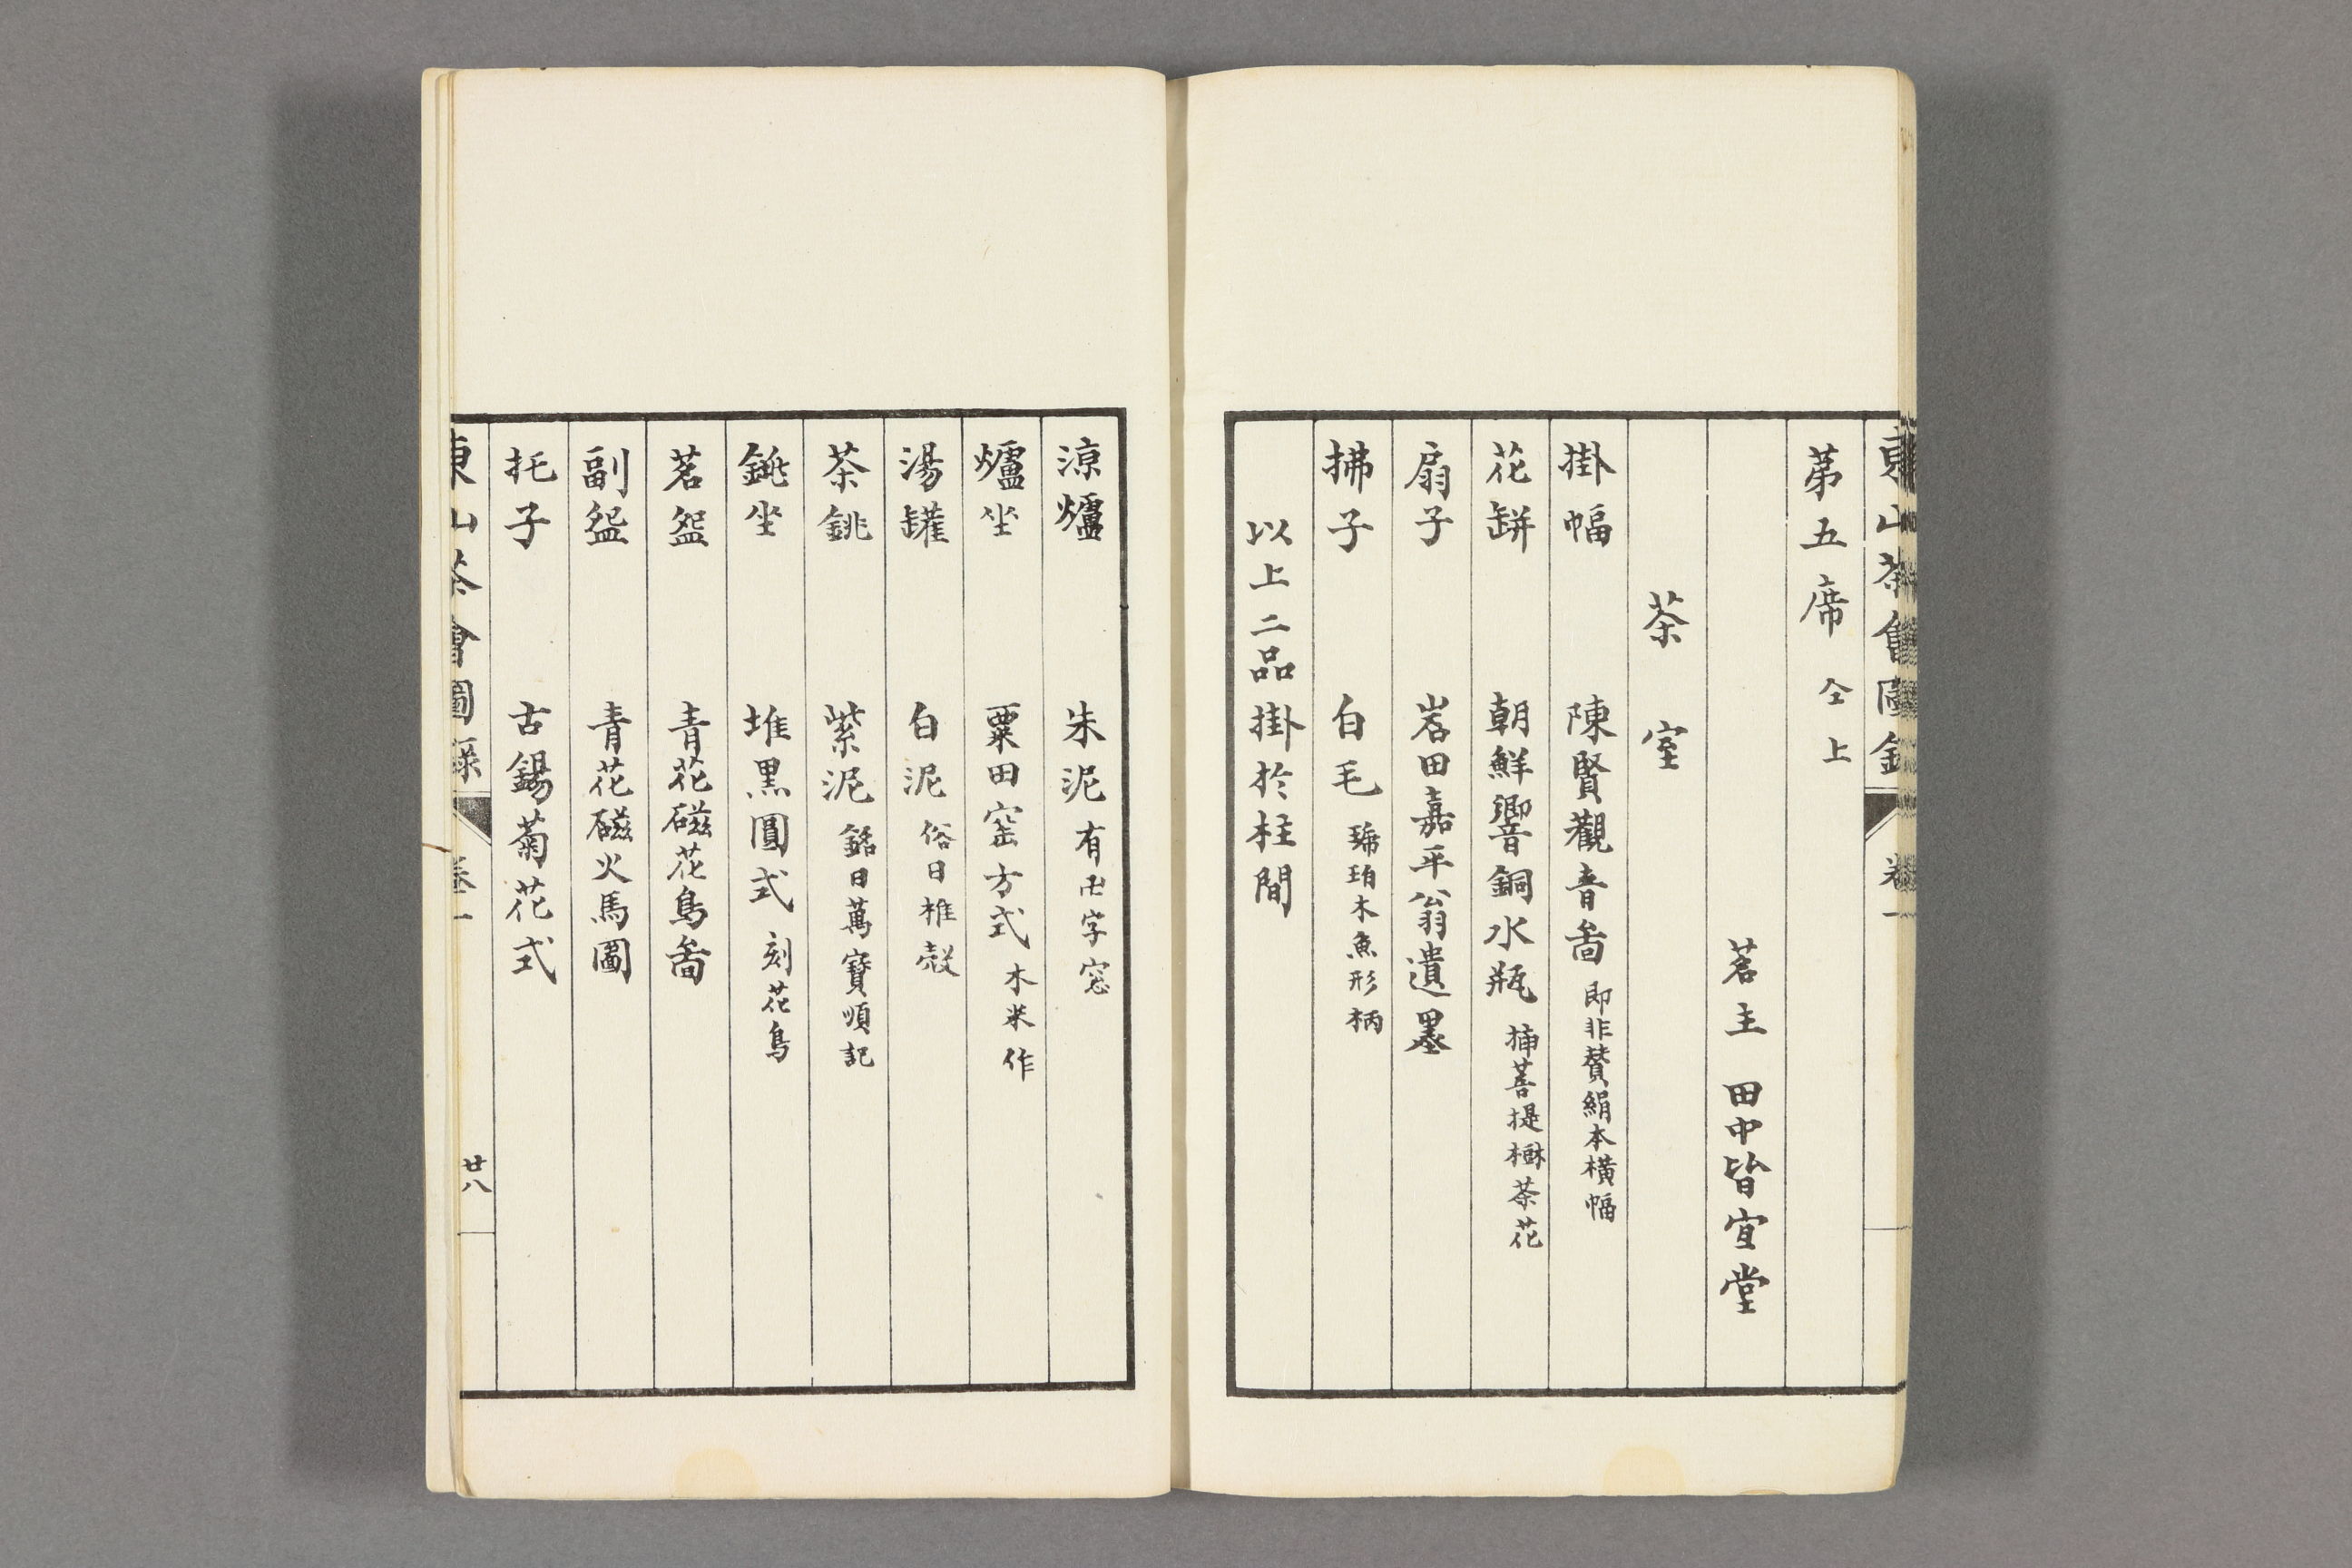 東山茶會圖錄 卷一
第五席 仝上
茗主 田中皆宜堂
茶室
掛幅 陳賢觀音啚 即非賛絹本橫幅
花缾 朝鮮響銅水瓶 揷菩提樹茶花
扇子 岩田嘉平翁遺墨
拂子 白毛 木魚形柄
以上二品掛於柱間
涼爐 朱泥 有卍字窓
爐坐 粟田窑方式 木米作
湯罐 白泥 俗曰椎殼
茶銚 紫泥 銘曰萬寶順記
銚坐 堆黑圓式 刻花鳥
茗盌 青花磁花鳥啚
副盌 青花磁火馬圖
托子 古錫菊花式
東山茶會圖錄 卷一 廿八